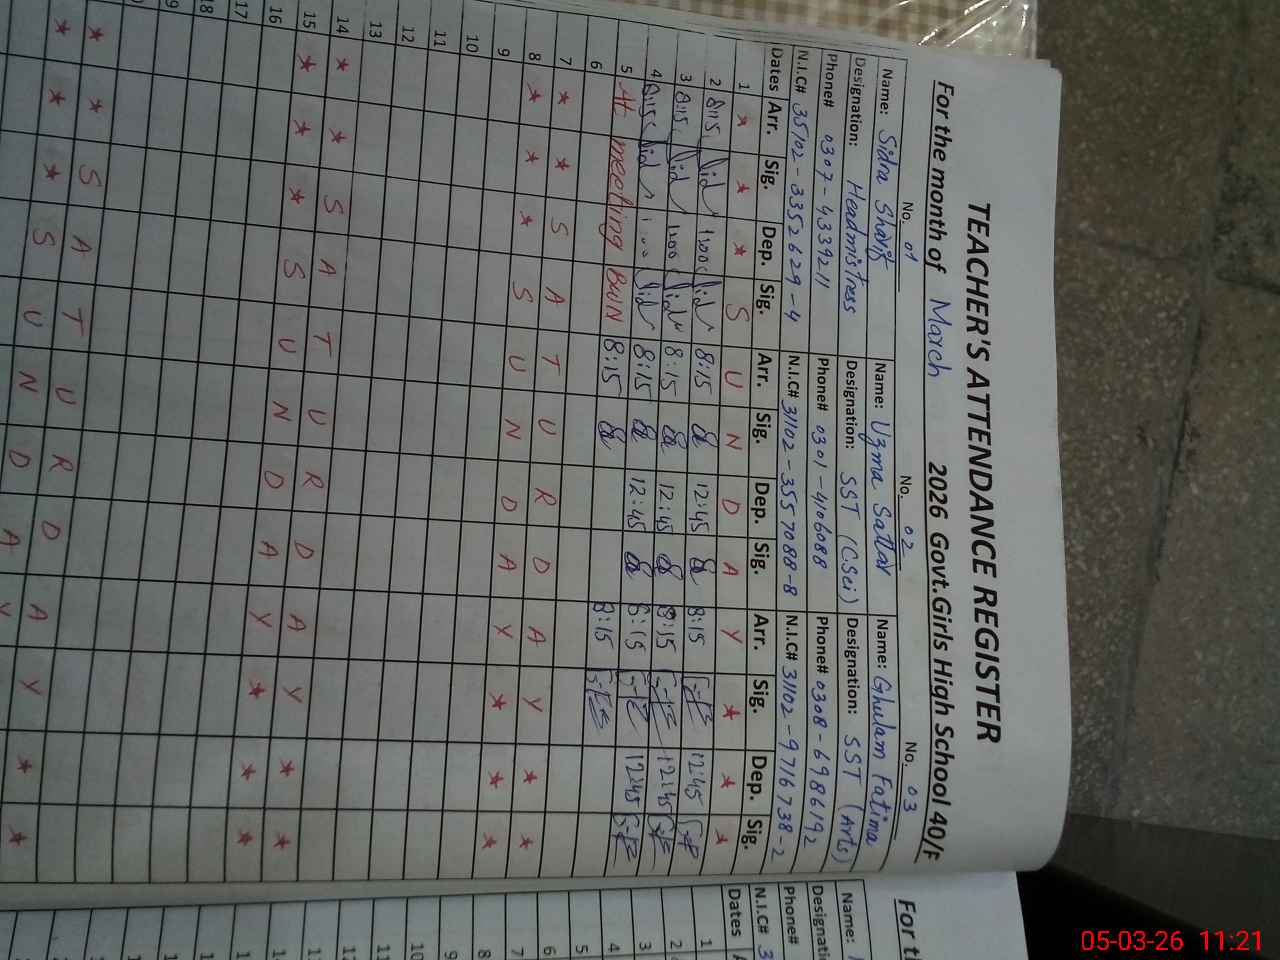 TEACHER'S ATTENDANCE REGISTER
For the month of March 2026 Govt.Girls High School 40/F
No. 01 No. 02 No. 03
Name: Sidra Sharif Name: Uzma Sattar Name: Ghulam Fatima
Designation: Headmistress Designation: SST (C.Sci) Designation: SST (Arts)
Phone# 0307-4339211 Phone# 0301-406088 Phone# 0308-6986192
N.I.C# 35102-3352629-4 N.I.C# 31102-3557088-8 N.I.C# 31102-9716738-2
Dates Arr. Sig. Dep. Sig. Arr. Sig. Dep. Sig. Arr. Sig. Dep. Sig.
1 * * * S U N D A Y * * *
2 8:15 1:00 8:15 12:45 8:15 12:45
3 8:15 1:00 8:15 12:45 8:15 12:45
4 8:15 8:15 12:45 8:15 12:45
5 At meeting BWN 8:15 8:15
6
7 * * S A T U R D A Y * *
8 * * * S U N D A Y * * *
9
10
11
12
13
14 * * S A T U R D A Y * *
15 * * * S U N D A Y * * *
16
17
18
* * S A T U R D A Y * *
* * * S U N D A Y
For t
Name:
Designati
Phone#
N.I.C# 3
Dates
1
2
3
4
5
6
7
8
9
10
11
12
05-03-26 11:21